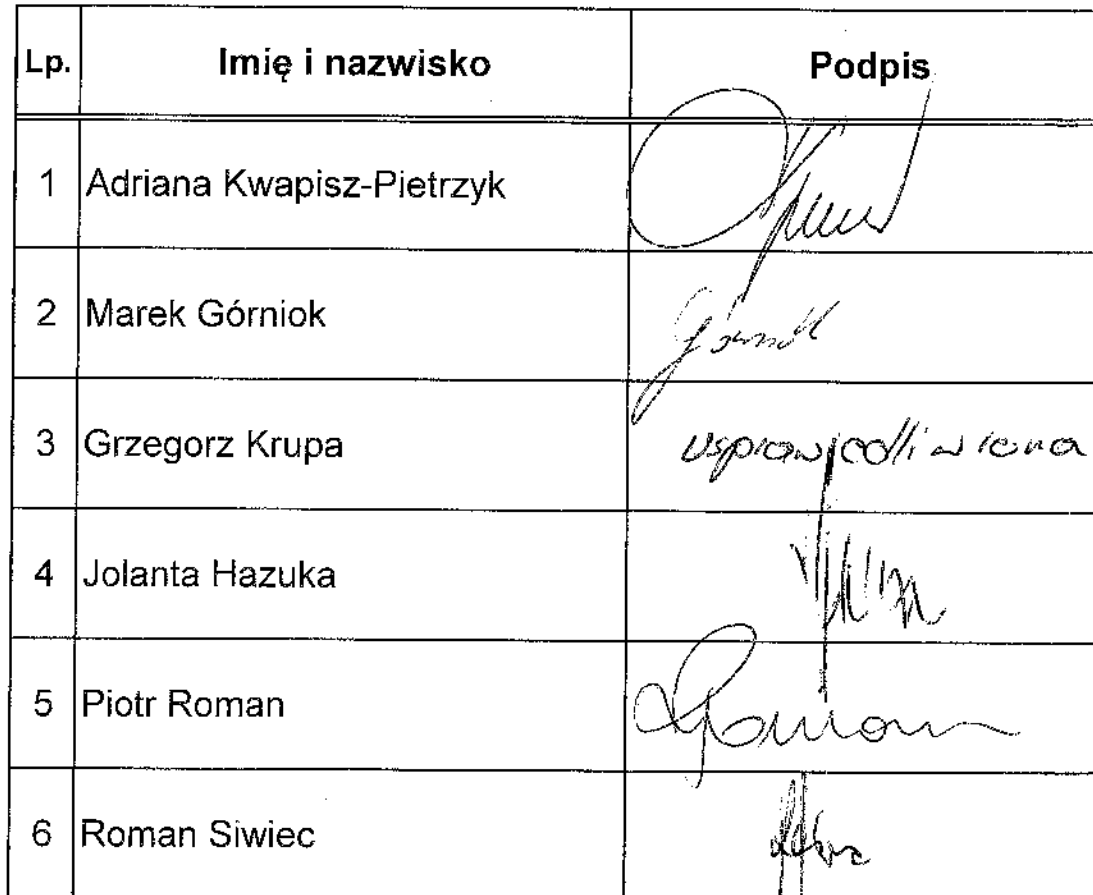 Lp. Imię i nazwisko Podpis
1 Adriana Kwapisz-Pietrzyk
2 Marek Górniok
3 Grzegorz Krupa usprawiedliwiona
4 Jolanta Hazuka
5 Piotr Roman Roman
6 Roman Siwiec